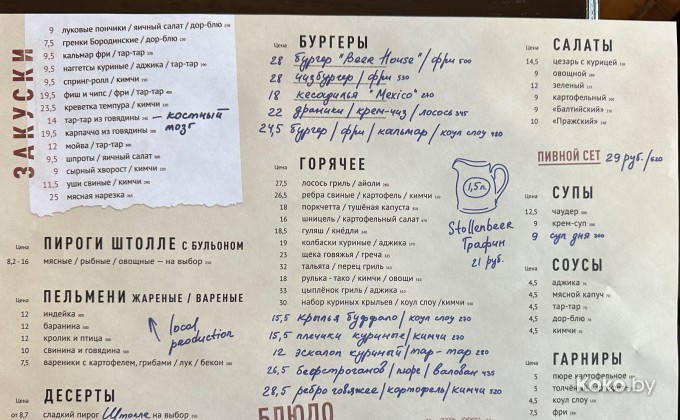 ЗАКУСКИ
9 луковые пончики / яичный салат / дор-блю
7,5 гренки Бородинские / дор-блю
9,5 кальмар фри / тар-тар
9,5 наггетсы куриные / аджика / тар-тар
9,5 спринг-ролл / кимчи
19,5 фиш и чипс / фри / тар-тар
23,5 креветка темпура / кимчи
14 тар-тар из говядины — костный мозг
19,5 карпаччо из говядины
12 мойва / тар-тар
9,5 шпроты / яичный салат
9 сырный хворост / кимчи
11,5 уши свиные / кимчи
25 мясная нарезка
Цена ПИРОГИ ШТОЛЛЕ С БУЛЬОНОМ
8,2 - 16 мясные / рыбные / овощные — на выбор
Цена ПЕЛЬМЕНИ ЖАРЕНЫЕ / ВАРЕНЫЕ
12 индейка
12 баранина
12 кролик и птица
10 свинина и говядина
7,5 вареники с картофелем, грибами / лук / бекон
local production
Цена ДЕСЕРТЫ
от 8,7 сладкий пирог Штолле на выбор
Цена БУРГЕРЫ
28 бургер "Beer House" / фри 500
28 чизбургер / фри 530
18 кесадилья "Mexico" 270
22 драники / крем-чиз / лосось 345
24,5 бургер / фри / кальмар / коул слоу 480
Цена ГОРЯЧЕЕ
27,5 лосось гриль / айоли
26,5 ребра свиные / картофель / кимчи
18 поркчетта / тушёная капуста
16 шницель / картофельный салат
18,5 гуляш / кнедли
19 колбаски куриные / аджика
23 щека говяжья / греча
32 тальята / перец гриль
18 рулька - тако / кимчи / овощи
33 цыплёнок гриль / аджика
30 набор куриных крыльев / коул слоу / кимчи
15,5 крылья буффало / коул слоу 230
15,5 плечики куриные / кимчи 230
12 эскалоп куриный / тар-тар 280
26,5 бефстроганов / пюре / волован 435
28,5 ребро говяжее / картофель / кимчи 320
БЛЮДО
1,5 л.
Stollenbeer
Графин
21 руб.
Цена САЛАТЫ
14,5 цезарь с курицей
9 овощной
12 зеленый
9 картофельный
9 «Балтийский»
10 «Пражский»
ПИВНОЙ СЕТ 29 руб./620
Цена СУПЫ
12,5 чаудер
9 крем-суп
9 суп дня 300
Цена СОУСЫ
4,5 аджика
4,5 мясной капуч
4,5 тар-тар
4,5 дор-блю
4,5 кимчи
Цена ГАРНИРЫ
5 пюре картофельное
5 толчён
Koko.by